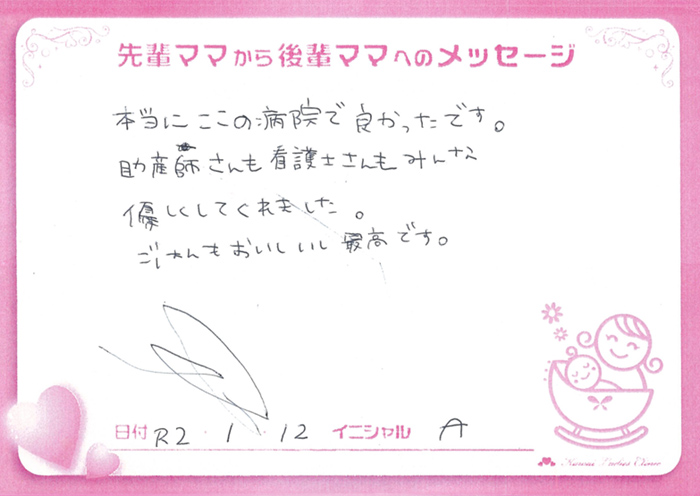 先輩ママから後輩ママへのメッセージ
本当にここの病院で良かったです。
助産師さんも看護士さんもみんな
優しくしてくれました。
ごはんもおいしいし最高です。
日付 R2 . 1 . 12 イニシャル A
Ladies Clinic